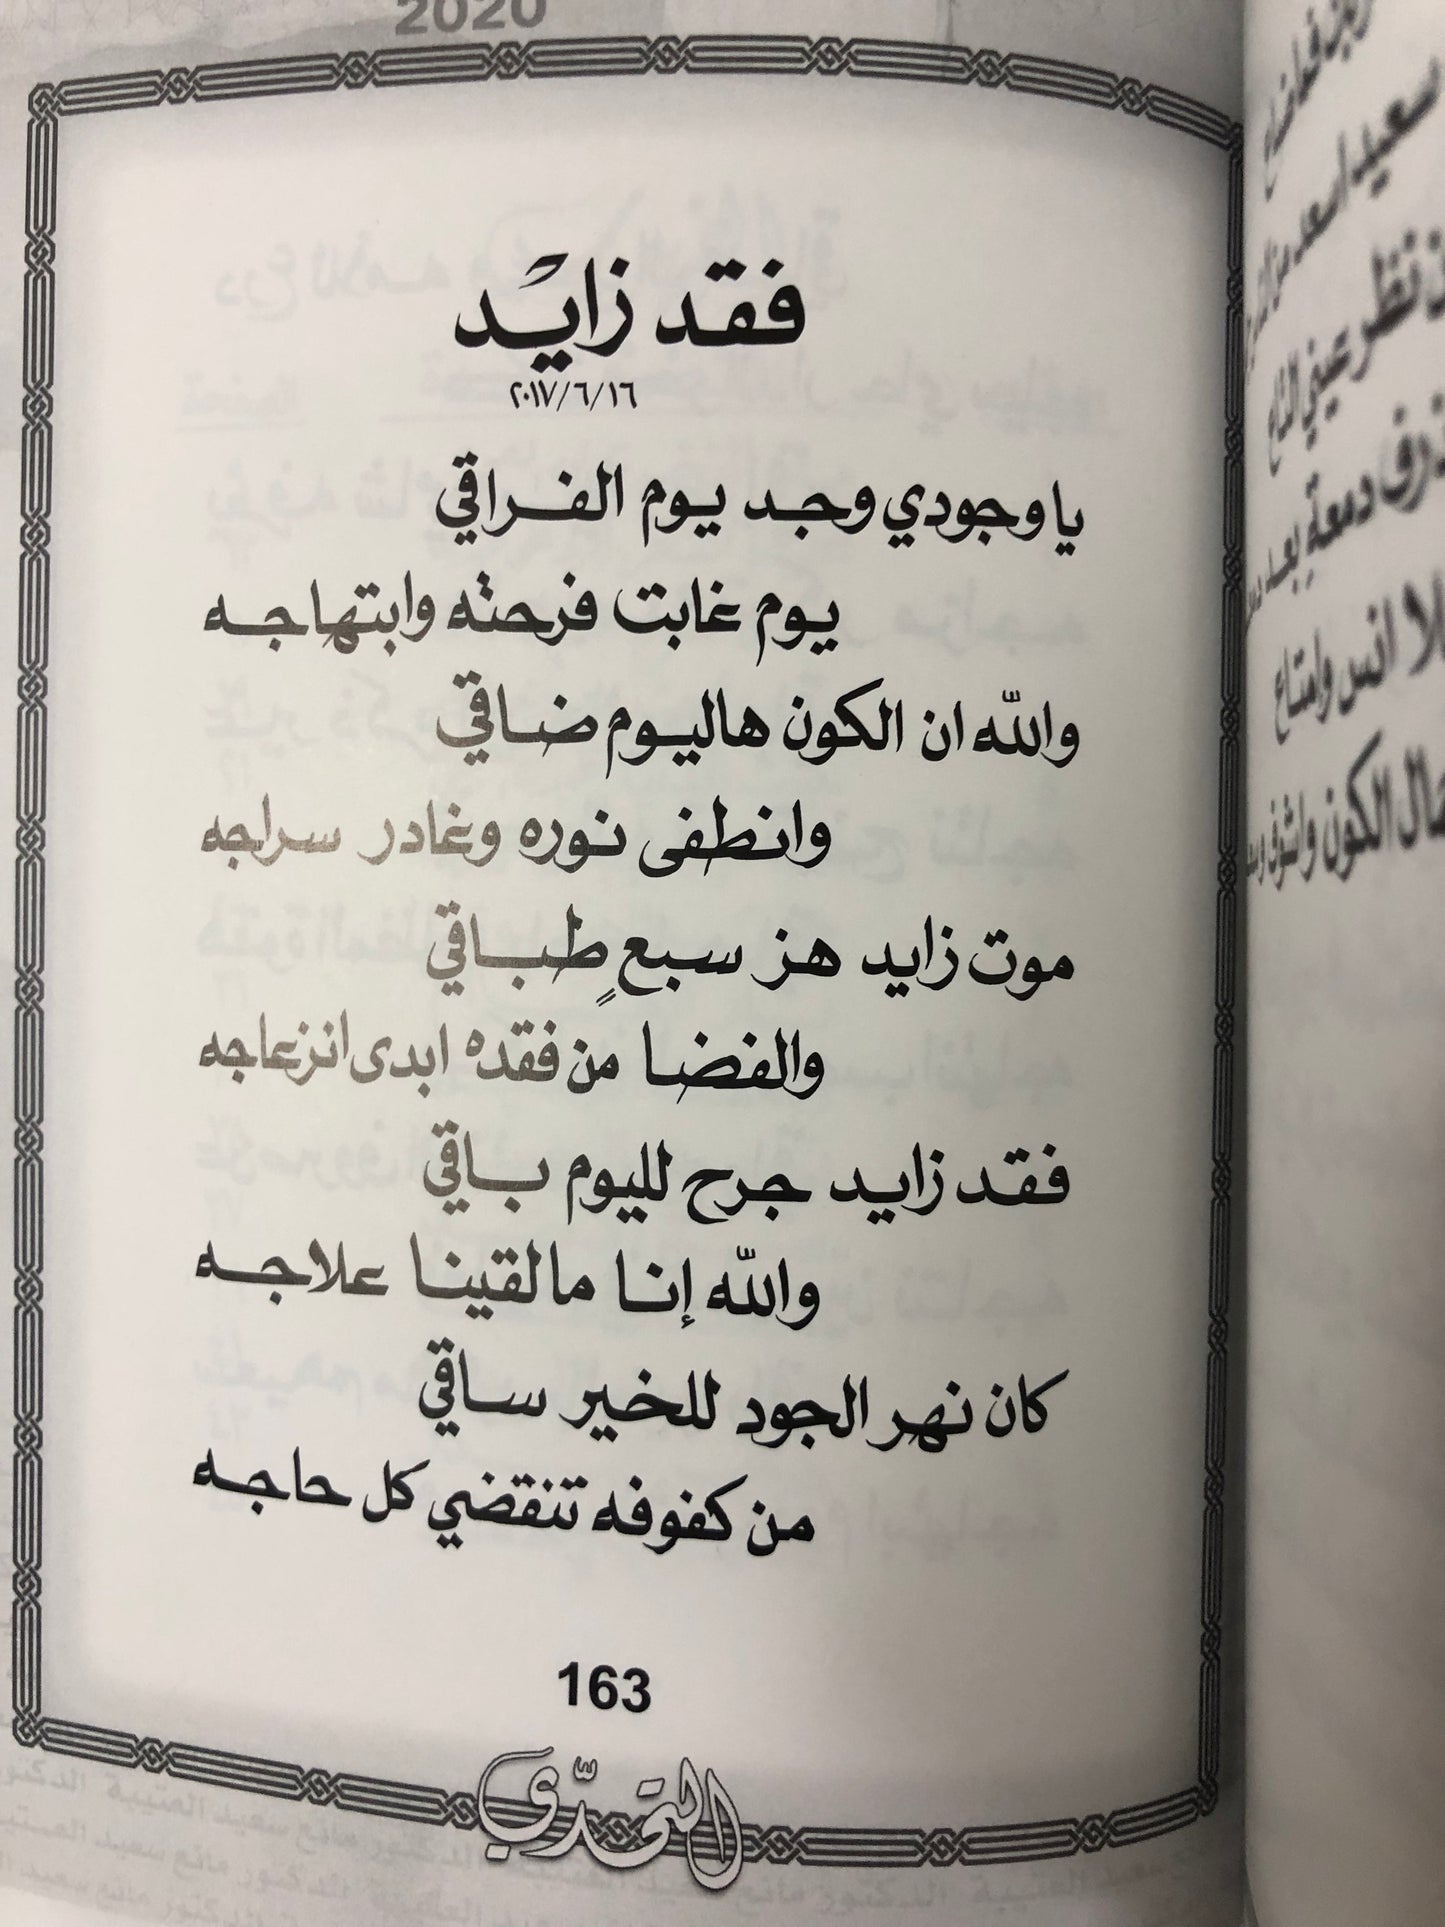 2020
فقد زايد
٢٠١٧/٦/١٦
يا وجودي وجد يوم الفراقي
يوم غابت فرحته وابتهاجه
والله ان الكون هاليوم ضاقي
وانطفى نوره وغادر سراجه
موت زايد هز سبعٍ طباقي
والفضا من فقده ابدى انزعاجه
فقد زايد جرح لليوم باقي
والله إنا مالقينا علاجه
كان نهر الجود للخير ساقي
من كفوفه تنقضي كل حاجه
163
التحدّي
سعيد اسعد
تظر عيني
دمعةٍ بعد
انس وامتاع
الكون واشوف